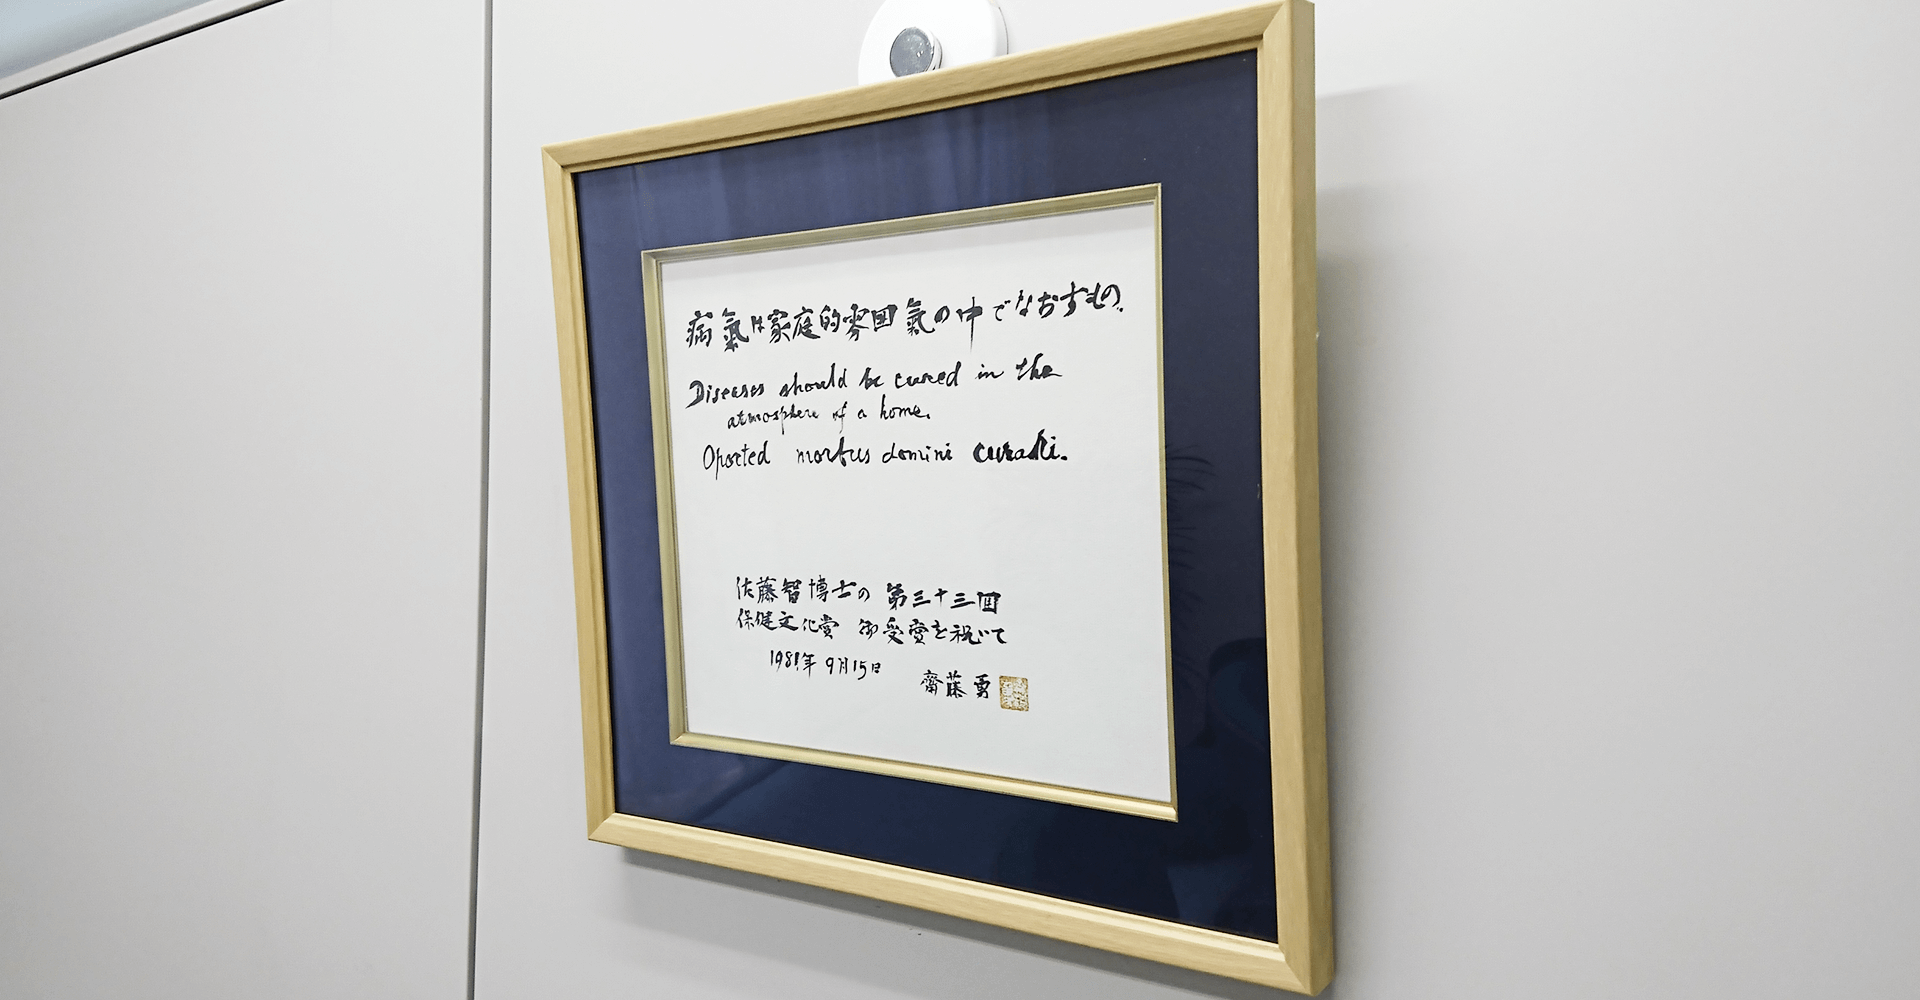 病氣は家庭的雰囲氣の中でなおすもの.
Diseases should be cured in the
atmosphere of a home.
Oported morbus domini curari.
佐藤智博士の 第三十三回
保健文化賞 御受賞を祝して
1981年9月15日
齋藤勇